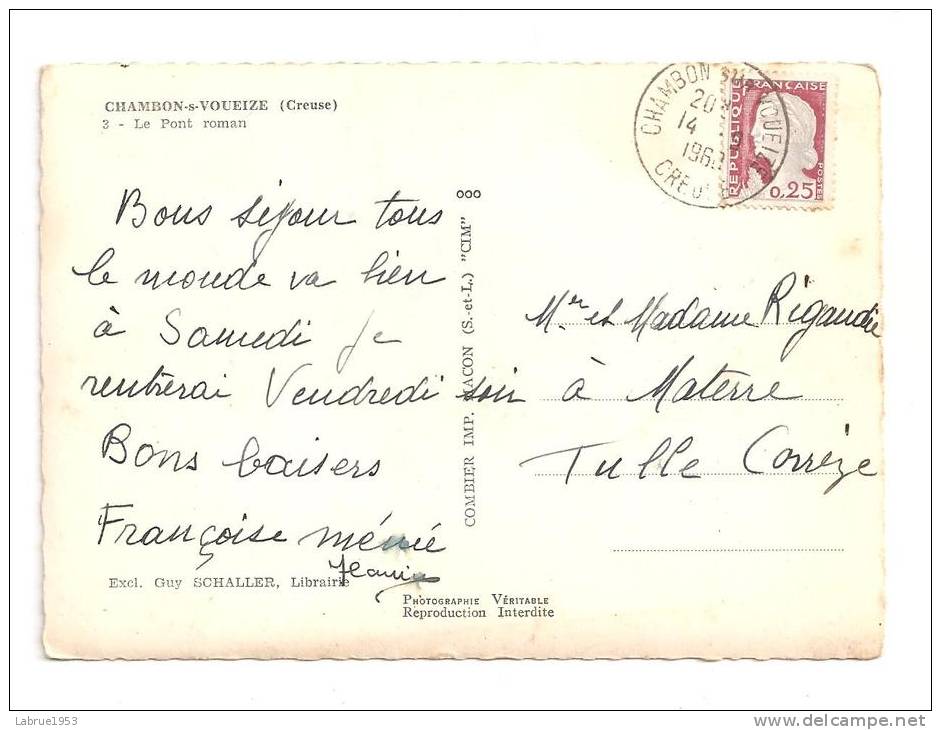 CHAMBON-s-VOUEIZE (Creuse)
3 - Le Pont roman
Bons séjour tous
le monde va bien
à Samedi je
rentrerai Vendredi soir
Bons baisers
Françoise mémé
Excl. Guy SCHALLER, Librairie
COMBIER IMP. MACON (S.-et-L.) "CIM"
PHOTOGRAPHIE VÉRITABLE
Reproduction Interdite
CHAMBON SUR VOUEIZE
20
14
196
CREUSE
REPUBLIQUE FRANÇAISE
0,25
POSTES
Mr et Madame Rigaudie
à Materre
Tulle Corrèze
Labrue1953
www.delcampe.net